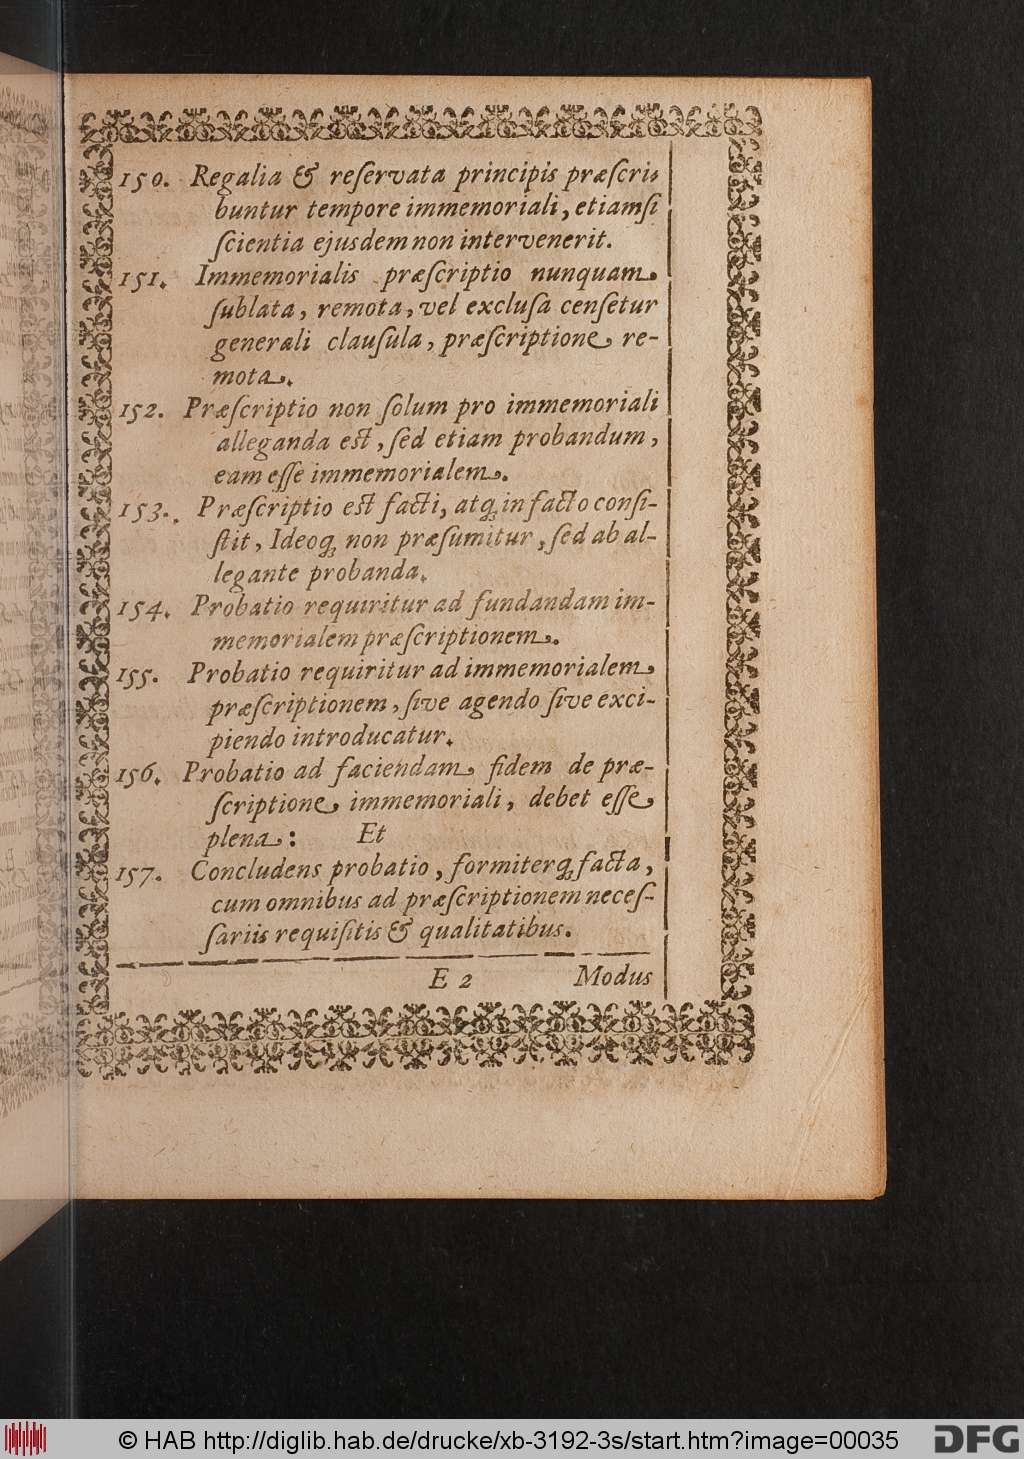 150. Regalia & reſervata principis præſcri-
buntur tempore immemoriali, etiamſi
ſcientia ejusdem non intervenerit.
151. Immemorialis præſcriptio nunquam
ſublata, remota, vel excluſa cenſetur
generali clauſula, præſcriptione re-
mota.
152. Præſcriptio non ſolum pro immemoriali
alleganda eſt, ſed etiam probandum,
eam eſſe immemorialem.
153. Præſcriptio eſt facti, atq; in facto conſi-
ſtit, Ideoq; non præſumitur, ſed ab al-
legante probanda.
154. Probatio requiritur ad fundandam im-
memorialem præſcriptionem.
155. Probatio requiritur ad immemorialem
præſcriptionem, ſive agendo ſive exci-
piendo introducatur.
156. Probatio ad faciendam fidem de præ-
ſcriptione immemoriali, debet eſſe
plena: Et
157. Concludens probatio, formiterq; facta,
cum omnibus ad præſcriptionem neceſ-
ſariis requiſitis & qualitatibus.
E 2 Modus
© HAB http://diglib.hab.de/drucke/xb-3192-3s/start.htm?image=00035
DFG